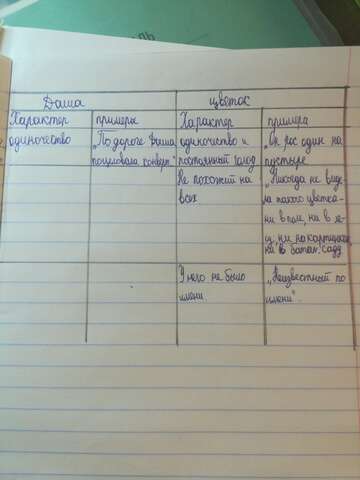 Даша
цветок
Характер
примеры
Характер
примера
одиночество
„По дороге Даша
поцеловала конверт"
одиночиство и
постоянный голод
„он рос один на
пустыре
Не похожий на
всех
„Никогда не виде
ла такого цветка-
ни в поле, ни в ле-
су, ни на картинке
ни в ботан. саду
У него не было
имени
„Неизвестный по
имени".